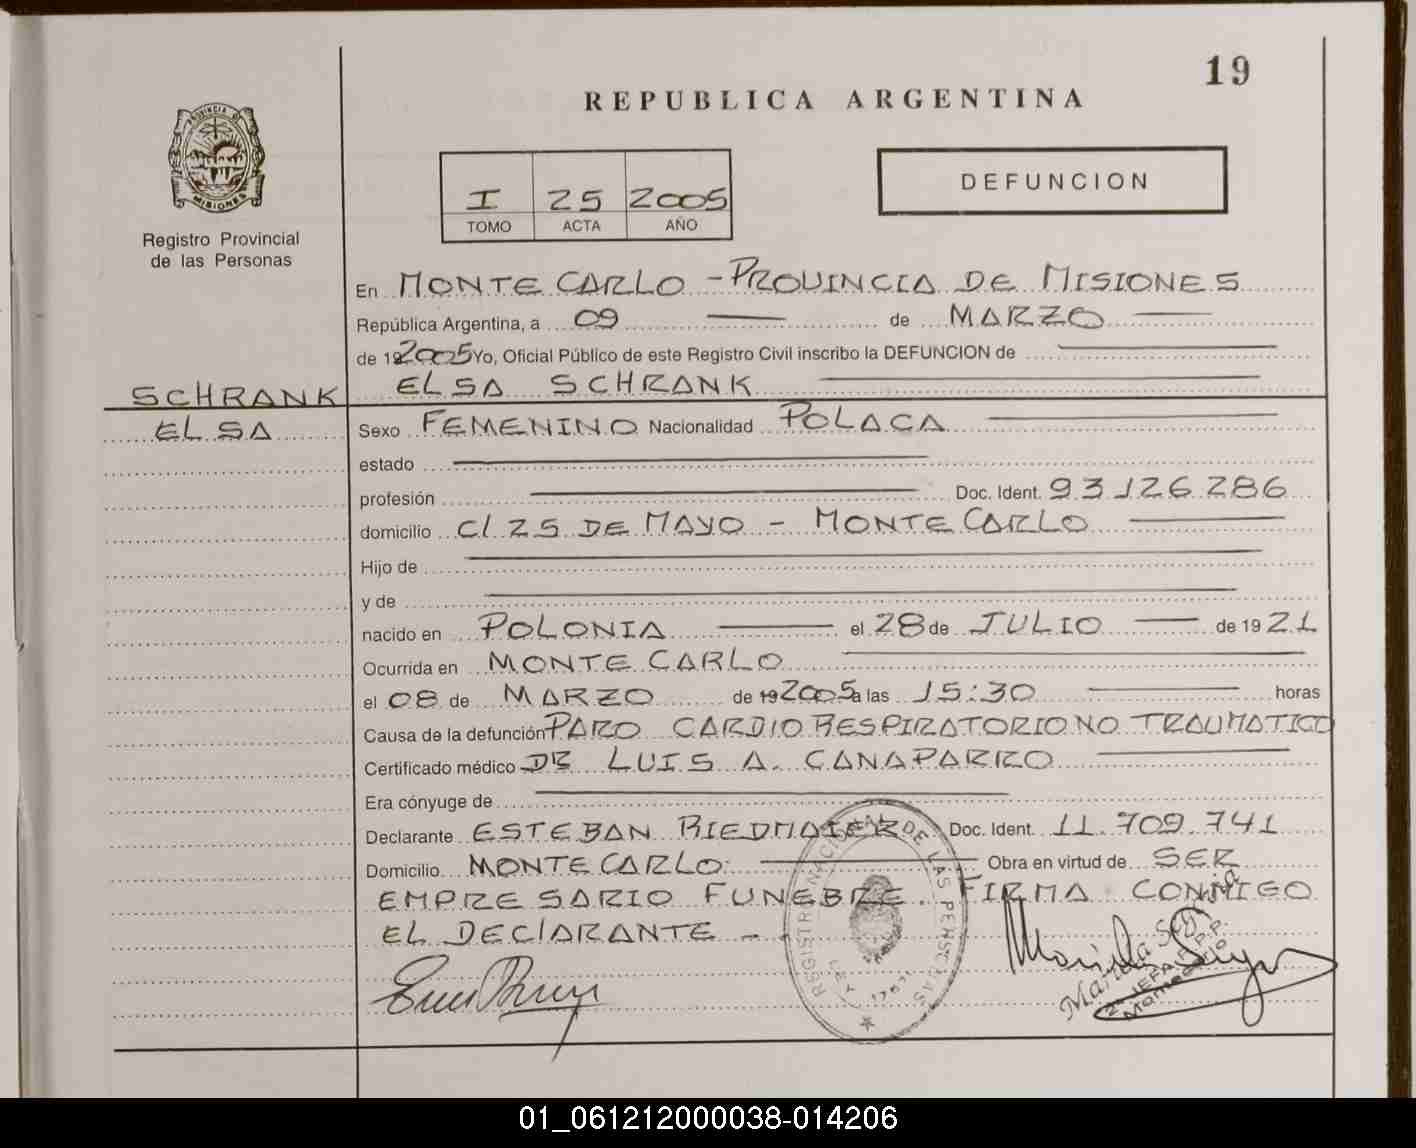 19
REPUBLICA ARGENTINA
PROVINCIA DE
MISIONES
Registro Provincial
de las Personas
I 25 2005
TOMO ACTA AÑO
DEFUNCION
En MONTE CARLO - PROVINCIA DE MISIONES
República Argentina, a 09 de MARZO
de 192005 Yo, Oficial Público de este Registro Civil inscribo la DEFUNCION de
SCHRANK ELSA SCHRANK
ELSA Sexo FEMENINO Nacionalidad POLACA
estado
profesión Doc. Ident. 93.126.286
domicilio C/ 25 DE MAYO - MONTE CARLO
Hijo de
y de
nacido en POLONIA el 28 de JULIO de 1921
Ocurrida en MONTE CARLO
el 08 de MARZO de 192005 a las 15:30 horas
Causa de la defunción PARO CARDIO RESPIRATORIO NO TRAUMATICO
Certificado médico DR LUIS A. CANAPARRO
Era cónyuge de
Declarante ESTEBAN RIEDMAIER Doc. Ident. 11.709.741
Domicilio MONTE CARLO. Obra en virtud de SER
EMPRESARIO FUNEBRE. FIRMA CONMIGO
EL DECLARANTE -
REGISTRO NACIONAL DE LAS PERSONAS
LEY
01_061212000038-014206